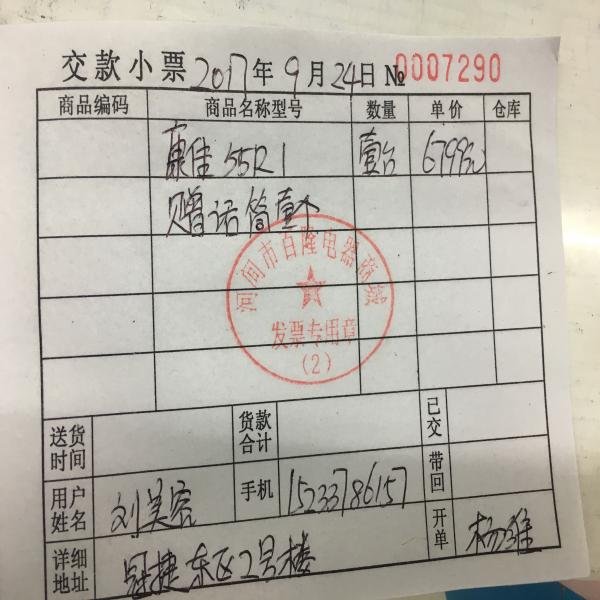 交款小票 2017年9月24日 № 0007290
商品编码 商品名称型号 数量 单价 仓库
康佳55R1 壹台 6799元
赠话筒壹个
河间市百隆电器商场
发票专用章
(2)
送货时间 货款合计 已交
用户姓名 刘美容 手机 15233786157 带回
详细地址 冠捷东区2号楼 开单 杨维